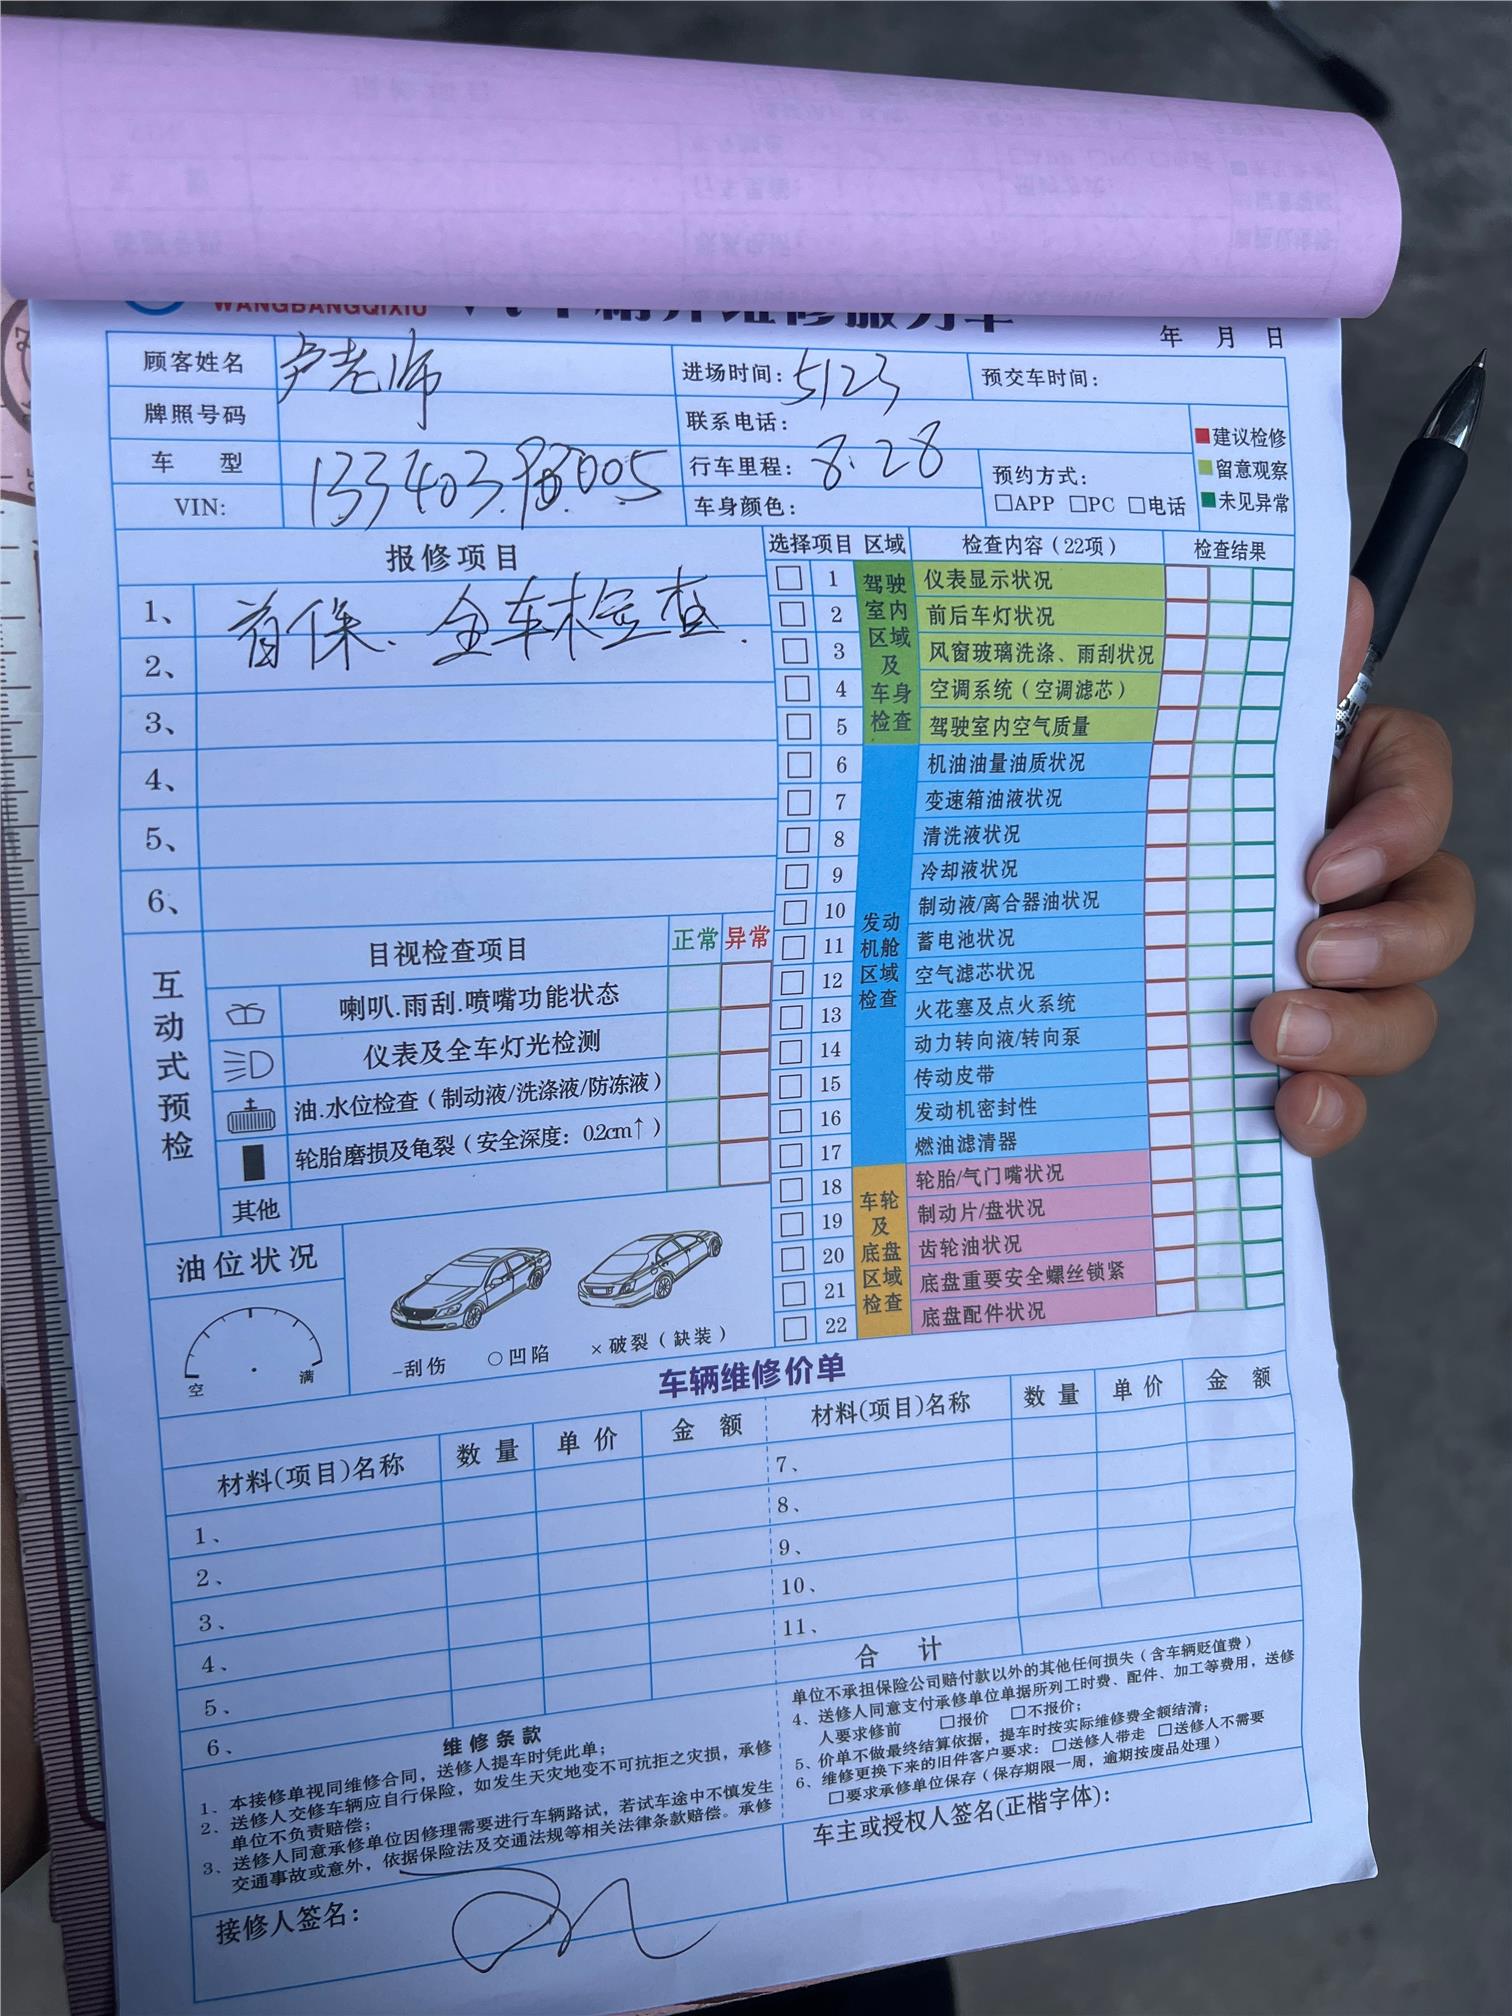 WANGBANGQIXIU
年 月 日
顾客姓名 卢老师 进场时间: 5123 预交车时间:
牌照号码 联系电话:
车 型 行车里程: 8.28 预约方式:
□APP □PC □电话
VIN: 车身颜色:
■建议检修
■留意观察
■未见异常
报修项目
1、 首保、全车检查.
2、
3、
4、
5、
6、
选择项目 区域 检查内容（22项） 检查结果
驾驶室内区域及车身检查
□ 1 仪表显示状况
□ 2 前后车灯状况
□ 3 风窗玻璃洗涤、雨刮状况
□ 4 空调系统（空调滤芯）
□ 5 驾驶室内空气质量
发动机舱区域检查
□ 6 机油油量油质状况
□ 7 变速箱油液状况
□ 8 清洗液状况
□ 9 冷却液状况
□ 10 制动液/离合器油状况
□ 11 蓄电池状况
□ 12 空气滤芯状况
□ 13 火花塞及点火系统
□ 14 动力转向液/转向泵
□ 15 传动皮带
□ 16 发动机密封性
□ 17 燃油滤清器
车轮及底盘区域检查
□ 18 轮胎/气门嘴状况
□ 19 制动片/盘状况
□ 20 齿轮油状况
□ 21 底盘重要安全螺丝锁紧
□ 22 底盘配件状况
互动式预检
目视检查项目 正常 异常
喇叭.雨刮.喷嘴功能状态
仪表及全车灯光检测
油.水位检查（制动液/洗涤液/防冻液）
轮胎磨损及龟裂（安全深度：0.2cm↑）
其他
油位状况
空 满
-刮伤 ○凹陷 ×破裂（缺装）
车辆维修价单
材料(项目)名称 数量 单价 金额
1、
2、
3、
4、
5、
6、
材料(项目)名称 数量 单价 金额
7、
8、
9、
10、
11、
合 计
维修条款
1、本接修单视同维修合同，送修人提车时凭此单；
2、送修人交修车辆应自行保险，如发生天灾地变不可抗拒之灾损，承修
单位不负责赔偿；
3、送修人同意承修单位因修理需要进行车辆路试，若试车途中不慎发生
交通事故或意外，依据保险法及交通法规等相关法律条款赔偿。承修
单位不承担保险公司赔付款以外的其他任何损失（含车辆贬值费）
4、送修人同意支付承修单位单据所列工时费、配件、加工等费用，送修
人要求修前 □报价 □不报价；
5、价单不做最终结算依据，提车时按实际维修费全额结清；
6、维修更换下来的旧件客户要求：□送修人带走 □送修人不需要
□要求承修单位保存（保存期限一周，逾期按废品处理）
接修人签名：
车主或授权人签名(正楷字体)：